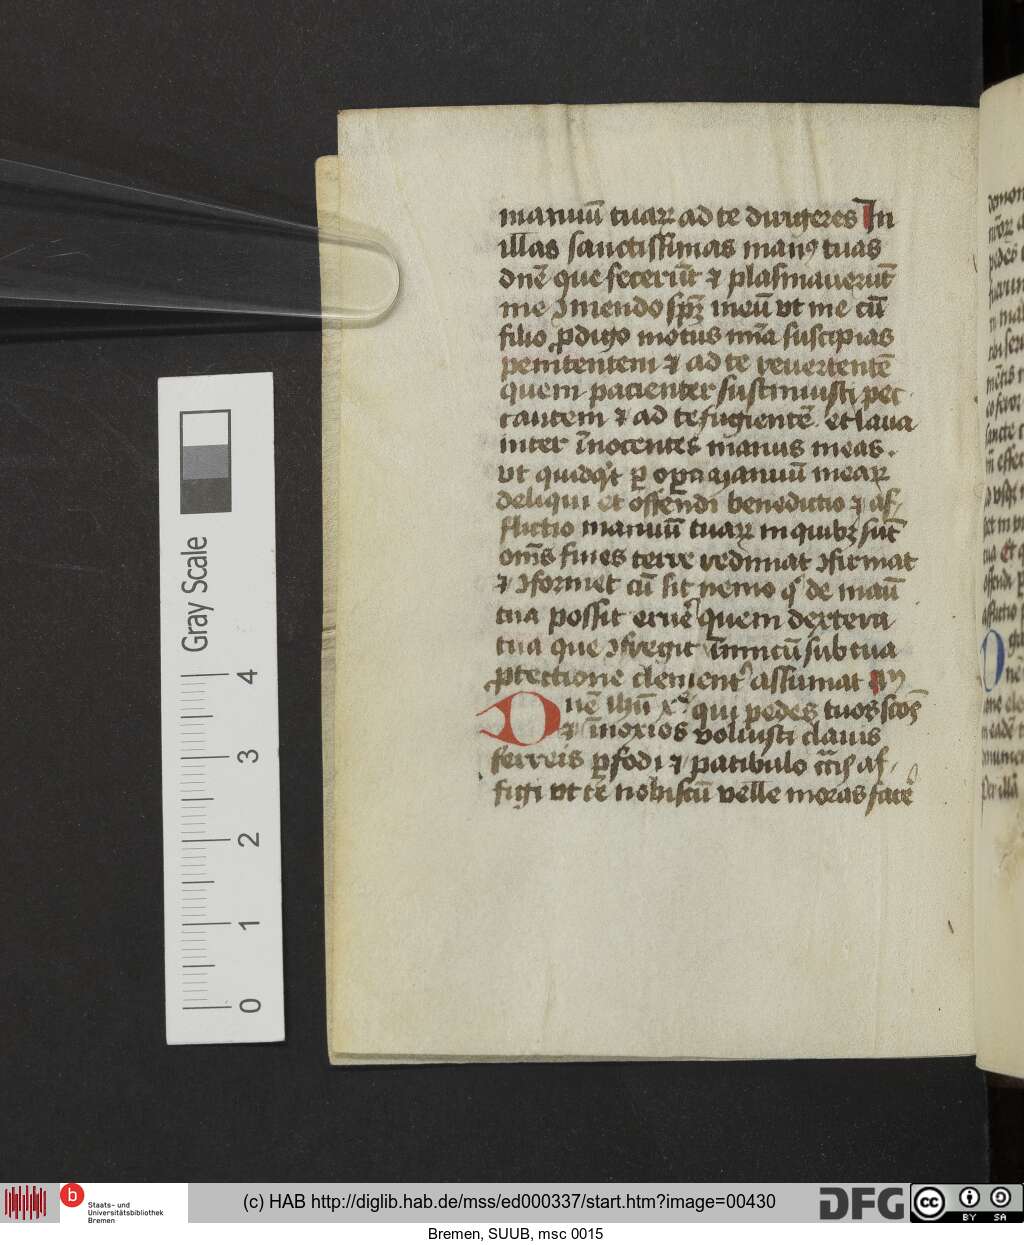 manuū tuaꝝ ad te dirigeres In
illas sanctissimas manꝰ tuas
dnē que fecerūt ⁊ plasmauerūt
me ꝯmendo spm̄ meū vt me cū
filio ꝓdigo motus mīa suscipias
penitentem ⁊ ad te reuertentē
quem pacienter sustinuisti pec
cantem ⁊ ad te fugientē et laua
inter īnocentes manus meas.
vt quidqͥt ꝑ opa manuū meaꝝ
deliqui et offendi benedictio ⁊ af-
flictio manuū tuaꝝ in quibꝫ sūt
om̄s fines terre redimat ꝯfirmat
⁊ ꝯformet cū sit nemo qͥ de manū
tua possit eruē quem dextera
tua que ꝯfregit īimicū sub tua
ꝓtectione clementʼ assumat am̄
Dnē ihū xͤ qui pedes tuos scōs
⁊ īnoxios voluisti clauis
ferreis ꝑfodi ⁊ patibulo cͣcis af-
figi vt te nobiscū velle moras facē
Gray Scale
4
3
2
1
0
b
Staats- und
Universitätsbibliothek
Bremen
(c) HAB http://diglib.hab.de/mss/ed000337/start.htm?image=00430
DFG
cc
BY SA
Bremen, SUUB, msc 0015